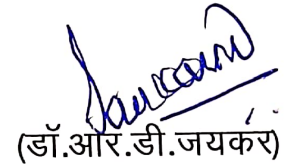 (डॉ.आर.डी.जयकर)